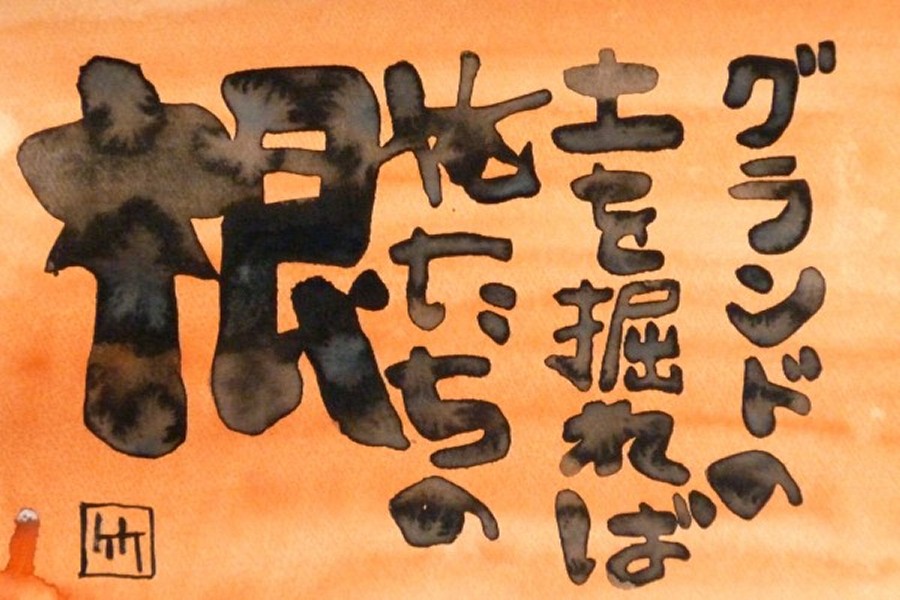 グランドの
土を掘れば
俺たちの
根
竹